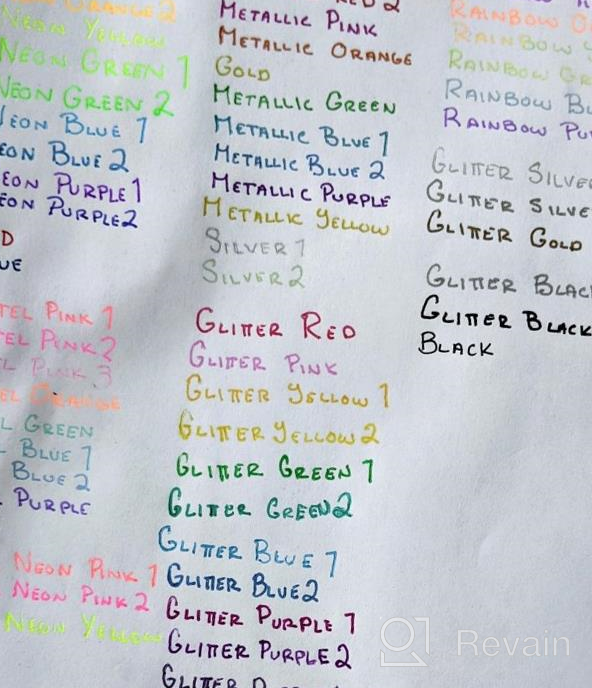 ORANGE 2
NEON YELLOW
NEON GREEN 1
NEON GREEN 2
NEON BLUE 1
EON BLUE 2
EON PURPLE 1
EON PURPLE 2
D
UE
TEL PINK 1
EL PINK 2
EL PINK 3
EL ORANGE
L GREEN
L BLUE 1
BLUE 2
PURPLE
NEON PINK 1
NEON PINK 2
NEON YELLOW
METALLIC PINK
METALLIC ORANGE
GOLD
METALLIC GREEN
METALLIC BLUE 1
METALLIC BLUE 2
METALLIC PURPLE
METALLIC YELLOW
SILVER 1
SILVER 2
GLITTER RED
GLITTER PINK
GLITTER YELLOW 1
GLITTER YELLOW 2
GLITTER GREEN 1
GLITTER GREEN 2
GLITTER BLUE 1
GLITTER BLUE 2
GLITTER PURPLE 1
GLITTER PURPLE 2
GLITTER
RAINBOW O
RAINBOW
RAINBOW GR
RAINBOW BL
RAINBOW PU
GLITTER SILVE
GLITTER SILVE
GLITTER GOLD
GLITTER BLAC
GLITTER BLACK
BLACK
Revain